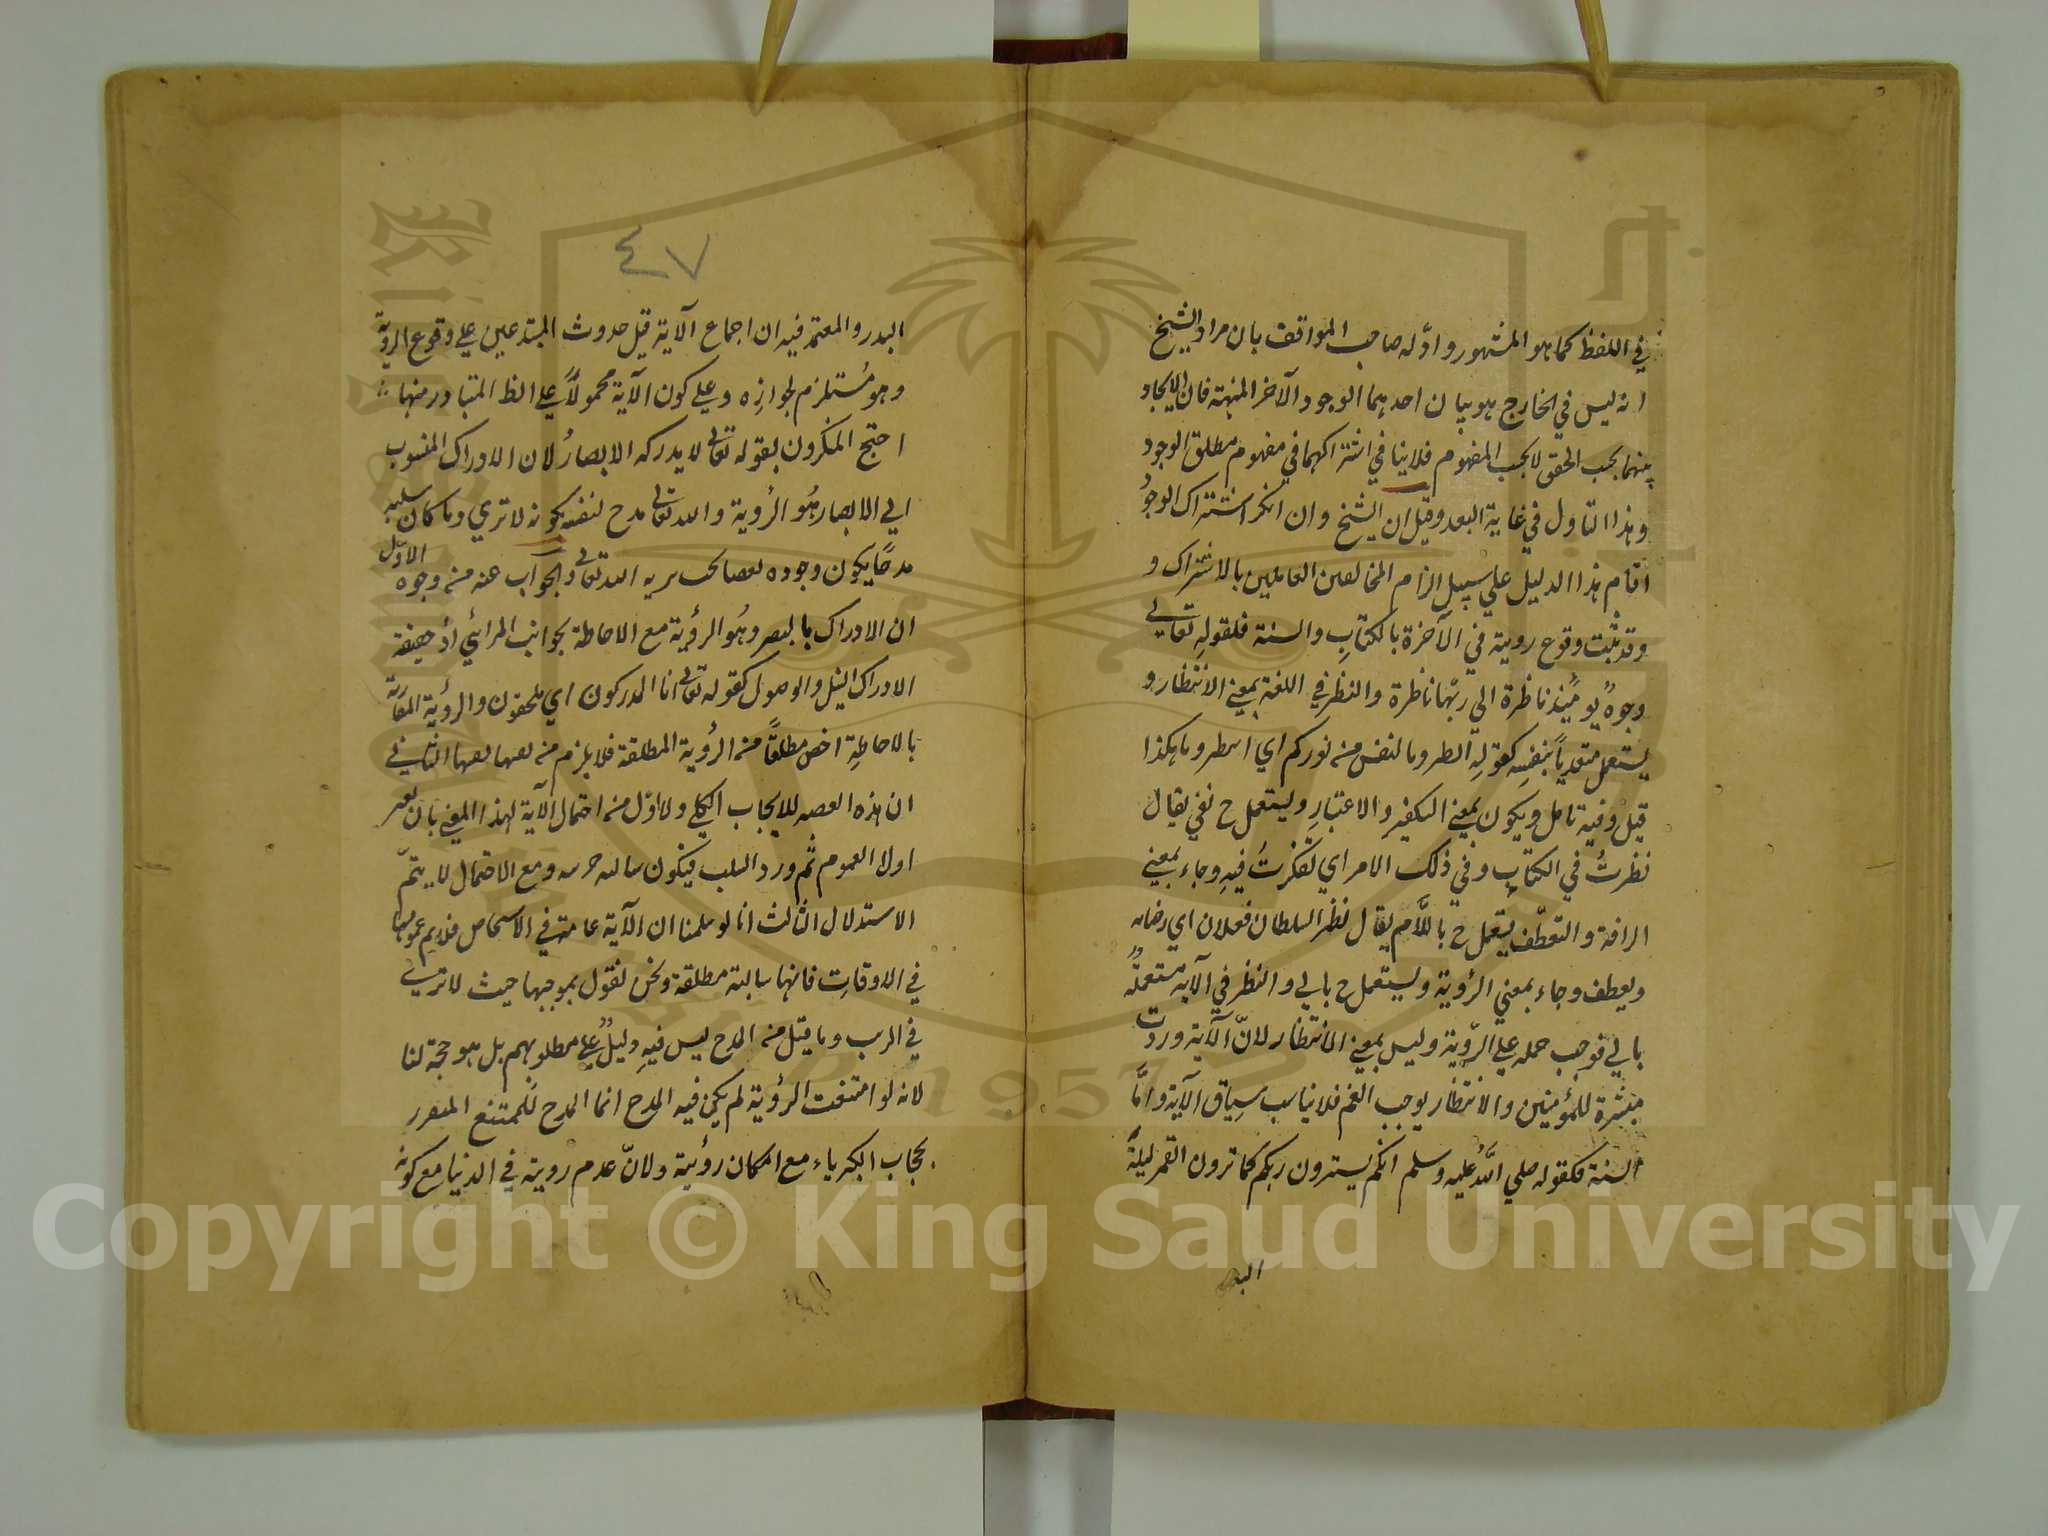 في اللفظ كما هو المشهور واوله صاحب المواقف بان مراد الشيخ
انه ليس في الخارج هويتان احدهما الوجود الآخر المهية فان الايجاد
بينهما بحسب الحقق لا بحسب المفهوم فلا ينافي اشتراكهما في مفهوم مطلق الوجود
وهذا التاول في غاية البعد وقيل ان الشيخ وان انكر اشتراك الوجود
اقام هذا الدليل علي سبيل الزام المخالفين القائلين بالاشتراك و
وقد ثبت وقوع روية في الآخرة بالكتاب والسنة فلقوله تعالي
وجوهٌ يومئذ ناظرة الي ربها ناظرة والنظر في اللغة بمعني الانتظار و
يستعمل متعدياً بنفسه كقوله انظرونا نقتبس من نوركم اي انتظرونا هكذا
قيل وفيه تامل ويكون بمعني التفكر والاعتبار ويستعمل ح بفي يقال
نظرتُ في الكتاب وفي ذلك الامر اي تفكرتُ فيه وجاء بمعني
الرافة والتعطّف يستعمل ح باللّام يقال نظر السلطان لفلان اي رضاه
ويعطف وجاء بمعني الرؤية ويستعمل ح بالي والنظر في الآية مستعملة
بالي فوجب حمله علي الرّوية وليس بمعني الانتظار لانّ الآية وردت
مبشرة للمؤمنين والانتظار يوجب الغم فلا يناسب سياق الآية وامّا
السنة فكقوله صلي اللّه عليه وسلم انكم سترون ربكم كما ترون القمر ليلة
البدر
البدر والمعتمد فيه ان اجماع الآية قبل حدوث المبتدعين علي وقوع الروية
وهو مُستلزم لجوازه وعلي كون الآية محمولاً علي الظ المتبادر منها
احتج المنكرون بقوله تعالي لا يدركه الابصارُ لان الادراك المنسوب
الي الابصار هُو الرُوية والله تعالي مدح لنفسه بكونه لا تري وما كان سلبه
مدحًا يكون وجوده نقصا يجب تنزيه الله تعالي والجواب عنه من وجوه الاوّل
ان الادراك بالبصر وهُو الرؤية مع الاحاطة بجوانب المرائي اذ حقيقة
الادراك النيل والوصول كقوله تعالي انا المدركون اي ملحقون والرؤية المقارنة
بالاحاطةِ اخص مطلقاً من الرؤية المطلقة فلا يلزم من نفيها نفيها الثاني
ان هذه القضية للايجاب الكلي ولا اوّل من احتمال الآية لهذا المعني بان يعتبر
اولا العموم ثم ورد السلب فيكون سالبة جزئية ومع الاحتمال لا يتمّ
الاستدلال الثالث انا لو سلمنا ان الآية عامة في الاشخاص فلا نم عمومها
في الاوقات فانها سالبة مطلقة ونحن نقول بموجبها حيث لا تري
في الدنيا وما قيل من المدح ليس فيهِ دليلٌ علي مطلوبهم بل هو حجة لنا
لانه لو امتنعت الرؤية لم يكن فيه المدح انما المدح للممتنع المتعزز
بحجاب الكبرياء مع امكان رؤيية ولانّ عدم روية في الدنيا مع كونه
٤٧
Copyright © King Saud University
1957